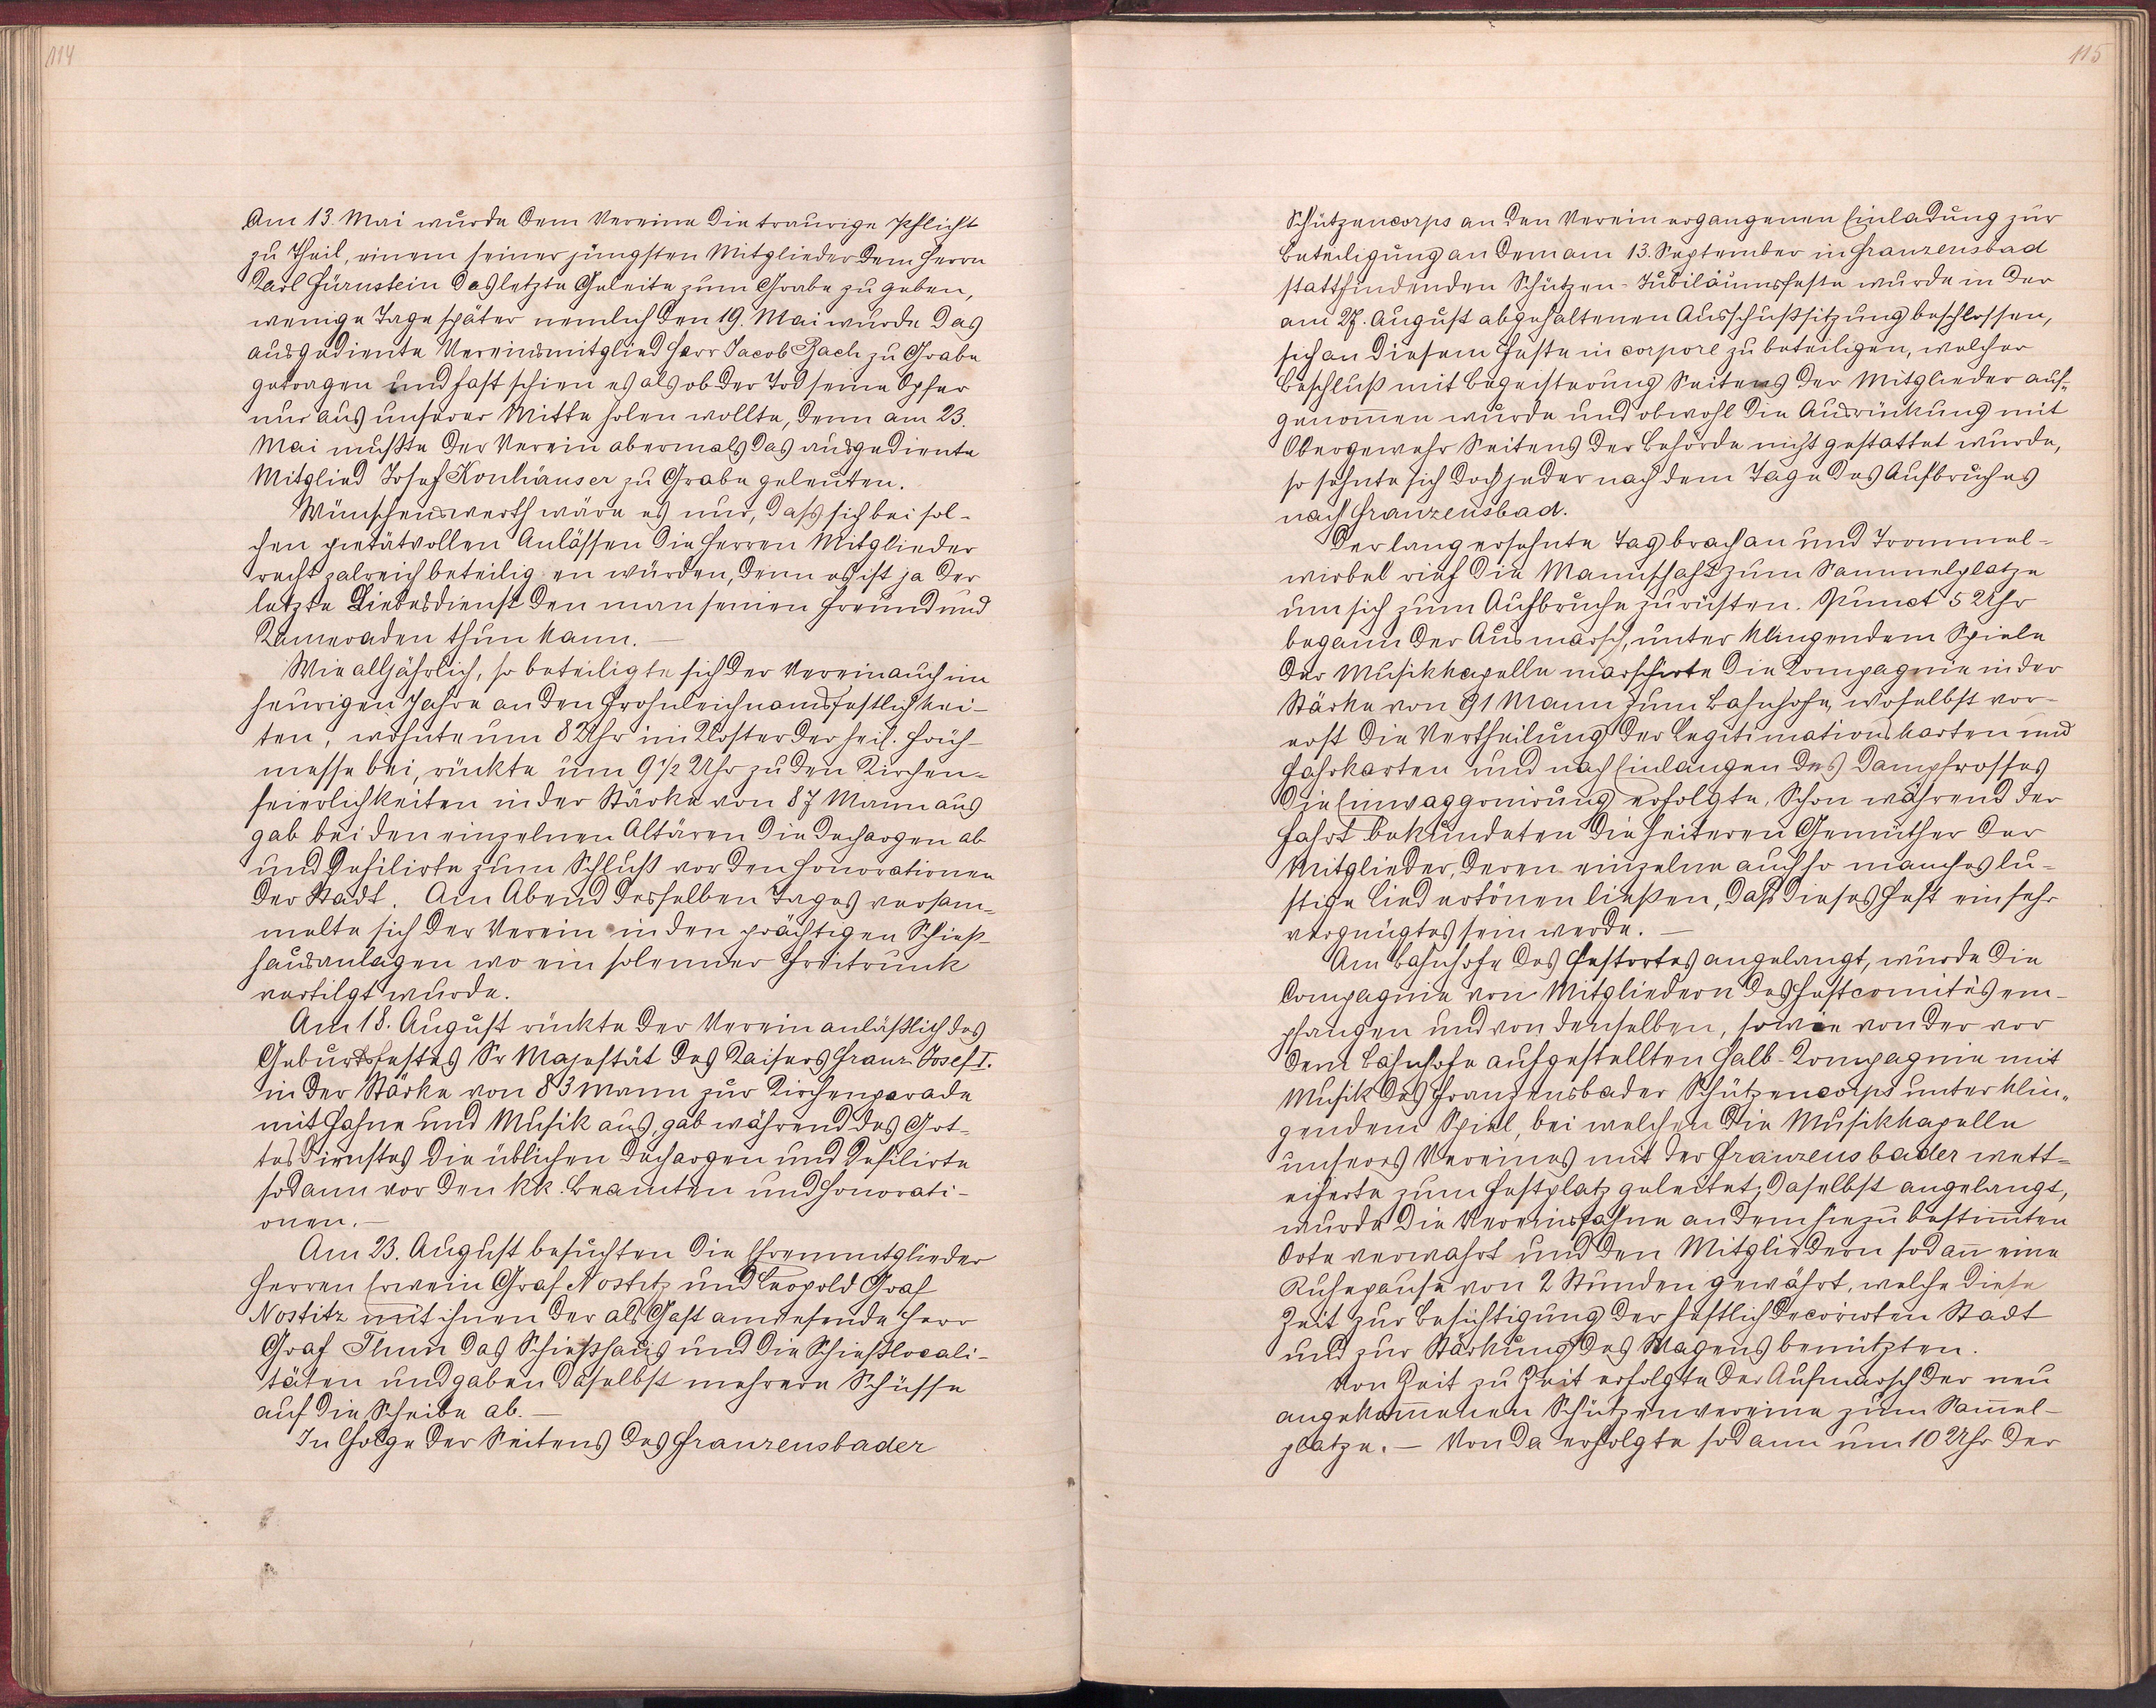 114
Am 13. Mai wurde dem Vereine die traurige Pflicht
zu Theil, einem seiner jüngsten Mitglieder dem Herrn
Karl Fürnstein das letzte Geleite zum Grabe zu geben,
wenige Tage später nemlich den 19. Mai wurde das
ausgediente Vereinsmitglied Herr Jacob Bach zu Grabe
getragen und fast schien es als ob der Tod seine Opfer
nur aus unserer Mitte holen wollte, denn am 23.
Mai mußte der Verein abermals das ausgediente
Mitglied Josef Konhäuser zu Grabe geleuten.
Wünschenswerth wäre es nur, dass sich bei sol-
chen pietätvollen Anlässen die Herren Mitglieder
recht zalreich beteiligen würden, denn es ist ja der
letzte Liebesdienst den man seinen Freund und
Kameraden thun kann. —
Wie alljährlich, so beteiligte sich der Verein auch im
heurigen Jahre an den Frohnleichnamsfestlichkei-
ten, wohnte um 8 Uhr im Kloster der heil. Früh-
messe bei, rückte um 9 1/2 Uhr zu den Kirchen-
feierlichkeiten in der Stärke von 87 Mann aus
gab bei den einzelnen Altären die Dechargen ab
und defilirte zum Schluß vor den Honorationen
der Stadt. Am Abend desselben Tages versam-
melte sich der Verein in den prächtigen Schieß-
hausanlagen wo ein solenner Freitrunk
vertilgt wurde.
Am 18. August rückte der Verein anläßlich des
Geburtsfestes Sr Majestät des Kaisers Franz Josef I.
in der Stärke von 83 Mann zur Kirchenparade
mit Fahne und Musik aus, gab während des Got-
tesdienstes die üblichen Dechargen und defilirte
sodann vor den kk. Beamten und Honorati-
onen. —
Am 23. August besuchten die Ehrenmitglieder
Herren Erwein Graf Nostitz und Leopold Graf
Nostitz mit ihnen der als Gast anwesende Herr
Graf Thun das Schießhaus und die Schießlocali-
täten und gaben daselbst mehrere Schüsse
auf die Scheibe ab. —
In Folge der Seitens des Franzensbader
115
Schützencorps an den Verein ergangenen Einladung zur
Beteiligung an dem am 13. September in Franzensbad
stattfindenden Schützen-Jubiläumsfeste wurde in der
am 27. August abgehaltenen Ausschußsitzung beschlossen,
sich an diesem Feste in corpore zu beteiligen, welcher
Beschluß mit Begeisterung Seitens der Mitglieder auf-
genom̅en wurde und obwohl die Ausrückung mit
Obergewehr Seitens der Behörde nicht gestattet wurde,
so sehnte sich doch jeder nach dem Tage des Aufbruches
nach Franzensbad.
Der lang ersehnte Tag brach an und Trommel-
wirbel rief die Mannschaft zum Sammelplatze
um sich zum Aufbruche zu rüsten. Punct 5 Uhr
begann der Ausmarsch, unter klingendem Spiele
der Musikkapelle marschirte die Kompagnie in der
Stärke von 91 Mann zum Bahnhofe, woselbst vor-
erst die Vertheilung der Legitimationskarten und
Fahrkarten und nach Einlangen des Dampfrosses
die Einwaggonirung erfolgte. Schon während der
Fahrt bekundeten die heiteren Gemüther der
Mitglieder, deren einzelne auch so manches lu-
stige Lied ertönen ließen, daß dieses Fest ein sehr
vergnügtes sein werde. —
Am Bahnhofe des Festortes angelangt, wurde die
Compagnie von Mitgliedern des Festcomités em-
pfangen und von denselben, sowie von der vor
dem Bahnhofe aufgestellten Halb-Kompagnie mit
Musik des Franzensbader Schützencorps unter klin-
gendem Spiel, bei welchen die Musikkapelle
unseres Vereines mit der Franzensbader wett-
eiferte zum Festplatz geleitet; daselbst angelangt,
wurde die Vereinsfahne an dem hiezu bestim̅ten
Orte verwahrt und den Mitgliedern sodan̅ eine
Ruhepause von 2 Stunden gewährt, welche diese
Zeit zur Besichtigung der festlich decorirten Stadt
und zur Stärkung des Magens benützten.
Von Zeit zu Zeit erfolgte der Aufmarsch der neu
angekom̅enen Schützenvereine zum Sam̅el-
platze. — Von da erfolgte sodann um 10 Uhr der